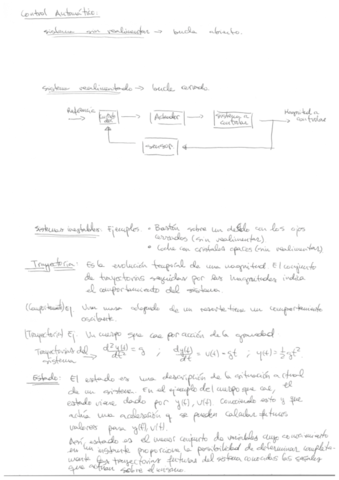 Control Automático:
sistema sin realimentar → bucle abierto.
sistema realimentado → bucle cerrado
Referencia
Magnitud a controlar
Actuador
sistema a controlar
sensor
Sistemas inestables. Ejemplos. • Bastón sobre un dedo con los ojos
cerrados (sin realimentar)
• Coche con cristales opacos (sin realimentar)
Trayectoria: Es la evolución temporal de una magnitud. El conjunto
de trayectorias seguidas por las magnitudes indica
el comportamiento del sistema
Ej Una masa colgada de un resorte tiene un comportamiento
oscilante.
(Trayectoria) Ej. Un cuerpo que cae por acción de la gravedad
Trayectoria del sistema d²y(t)/dt² = g ; dy(t)/dt = v(t) = gt ; y(t) = ½ gt²
Estado: El estado es una descripción de la situación actual
de un sistema. En el ejemplo del cuerpo que cae, el
estado viene dado por y(t), v(t). Conociendo esto y que
existe una aceleración g se pueden calcular futuros
valores para y(t), v(t).
Así, estado es el menor conjunto de variables cuyo conocimiento
en un instante proporciona la posibilidad de determinar completa-
mente las trayectorias futuras del sistema conocidas las señales
que actúan sobre el mismo.